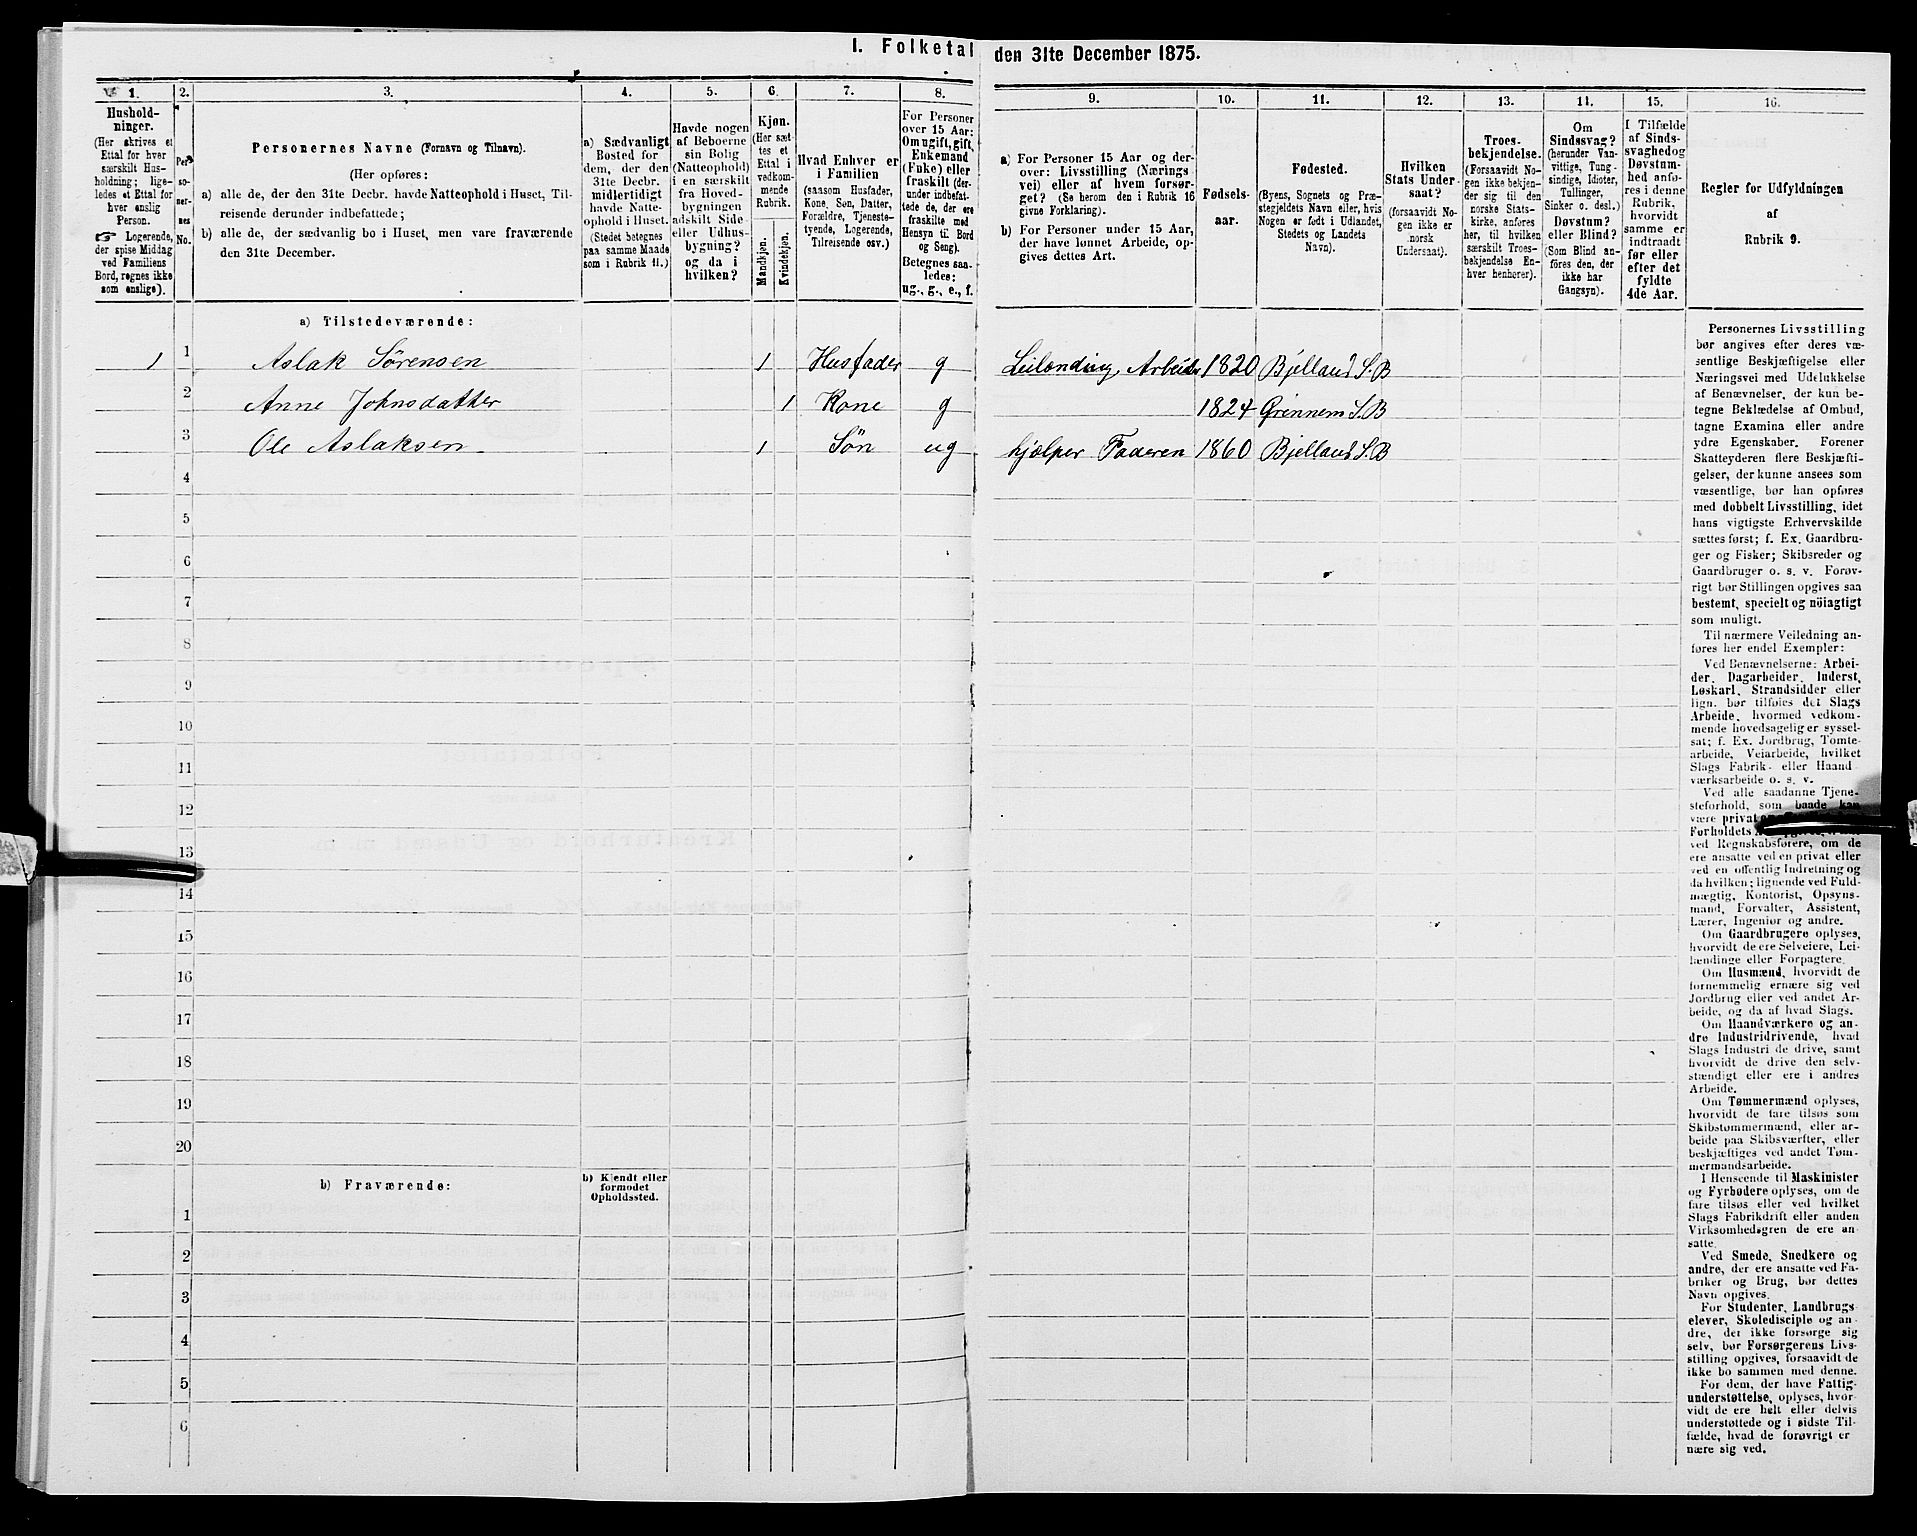 I. Folketal den 31te December 1875.
1. 2. 3. 4. 5. 6. 7. 8. 9. 10. 11. 12. 13. 14. 15. 16.
Hushold-
ninger.
(Her skrives et
Ettal for hver
særskilt Hus-
holdning; lige-
ledes et Ettal for
hver enslig
Person.
☞ Logerende,
der spise Middag
ved Familiens
Bord, regnes ikke
som enslige).
Per-
so-
ner-
nes
No.
Personernes Navne (Fornavn og Tilnavn).
(Her opføres:
a) alle de, der den 31te Decbr. havde Natteophold i Huset, Til-
reisende derunder indbefattede;
b) alle de, der sædvanlig bo i Huset, men vare fraværende
den 31te December.
a) Sædvanligt
Bosted for
dem, der den
31te Decbr.
midlertidigt
havde Natte-
ophold i Huset.
(Stedet betegnes
paa samme Maade
som i Rubrik 11.)
Havde nogen
af Beboerne
sin Bolig
(Natteophold)
i en særskilt
fra Hoved-
bygningen
adskilt Side-
eller Udhus-
bygning?
og da i
hvilken?
Kjøn.
(Her sæt-
tes et
Ettal i
vedkom-
mende
Rubrik.
Mandkjøn.
Kvindekjøn.
Hvad Enhver er
i Familien
(saasom Husfader,
Kone, Søn, Datter,
Forældre, Tjeneste-
tyende, Logerende,
Tilreisende osv.)
For Personer
over 15 Aar:
Om ugift, gift,
Enkemand
(Enke) eller
fraskilt (der-
under indbefat-
tede de, der ere
fraskilte med
Hensyn til Bord
og Seng).
Betegnes saa-
ledes:
ug., g., e., f.
a) For Personer 15 Aar og der-
over: Livsstilling (Nærings
vei) eller af hvem forsør-
get? (Se herom den i Rubrik 16
givne Forklaring).
b) For Personer under 15 Aar,
der have lønnet Arbeide, op-
gives dettes Art.
Fødsels-
aar.
Fødested.
(Byens, Sognets og Præ-
stegjeldets Navn eller, hvis
Nogen er født i Udlandet,
Stedets og Landets
Navn).
Hvilken
Stats Under-
saat?
(forsaavidt No-
gen ikke er
norsk
Undersaat).
Troes-
bekjendelse.
(Forsaavidt No-
gen ikke bekjen-
der sig til den
norske Stats-
kirke, anføres
her, til hvilken
særskilt Troes-
bekjendelse En-
hver henhører).
Om
Sindssvag?
(herunder Van-
vittige, Tung-
sindige, Idioter,
Tullinger,
Sinker o. desl.)
Døvstum?
eller Blind?
(Som Blind an-
føres den, der
ikke har
Gangsyn).
I Tilfælde
af Sinds-
svaghed og
Døvstum-
hed anfø-
res i denne
Rubrik,
hvorvidt
samme er
indtraadt
før eller
efter det
fyldte
4de Aar.
Regler for Udfyldningen
af
Rubrik 9.
a) Tilstedeværende:
1 1 Aslak Sörensen 1 Husfader g Leilænding, Arbeider 1820 Bjelland S.B
2 Anne Johnsdatter 1 Kone g 1824 Grinnem S.B
3 Ole Aslaksen 1 Søn ug hjælper Faderen 1860 Bjelland S.B
4
5
6
7
8
9
10
11
12
13
14
15
16
17
18
19
20
b) Fraværende:
b) Kjendt eller
formodet
Opholdssted.
1
2
3
4
5
6
Personernes Livsstilling
bør angives efter deres væ-
sentlige Beskjæftigelse eller
Næringsvei med Udelukkelse
af Benævnelser, der kun be-
tegne Beklædelse af Ombud,
tagne Examina eller andre
ydre Egenskaber. Forener
Skatteyderen flere Beskjæfti-
gelser, der kunne ansees som
væsentlige, bør han opføres
med dobbelt Livsstilling, idet
hans vigtigste Erhvervskilde
sættes først; f. Ex. Gaardbru-
ger og Fisker; Skibsreder og
Gaardbruger o. s. v. Forøv-
rigt bør Stillingen opgives saa
bestemt, specielt og nöiagtigt
som muligt.
Til nærmere Veiledning an-
føres her endel Exempler:
Ved Benævnelserne: Arbei-
der, Dagarbeider, Inderst,
Løskarl, Strandsidder eller
lign. bør tilføies det Slags
Arbeide, hvormed vedkom-
mende hovedsagelig er syssel-
sat; f. Ex. Jordbrug, Tomte-
arbeide, Veiarbeide, hvilket
Slags Fabrik- eller Haand-
værksarbeide o. s. v.
Ved alle saadanne Tjene-
steforhold, som baade kan
være privat
Forholdets
ved Regnskabsførere, om de
ere ansatte ved en privat eller
ved en offentlig Indretning og
da hvilken; lignende ved Fuld-
mægtig, Kontorist, Opsyns-
mand, Forvalter, Assistent,
Lærer, Ingeniør og andre.
Om Gaardbrugere oplyses,
hvorvidt de ere Selveiere, Lei-
lændinge eller Forpagtere.
Om Husmænd, hvorvidt de
fornemmelig ernære sig ved
Jordbrug eller ved andet Ar-
beide, og da af hvad Slags.
Om Haandværkere og an-
dre Industridrivende, hvad
Slags Industri de drive, samt
hvorvidt de drive den selv-
stændigt eller ere i andres
Arbeide.
Om Tømmermænd oplyses,
hvorvidt de fare tilsøs som
Skibstømmermænd, eller ar-
beide paa Skibsværfter, eller
beskjæftiges ved andet Tøm-
mermandsarbeide.
I Henseende til Maskinister
og Fyrbødere oplyses, om de
fare tilsøs eller ved hvilket
Slags Fabrikdrift eller anden
Virksomhedsgren de ere an-
satte.
Ved Smede, Snedkere og
andre, der ere ansatte ved Fa-
briker og Brug, bør dettes
Navn opgives.
For Studenter, Landbrugs-
elever, Skoledisciple og an-
dre, der ikke forsørge sig
selv, bør Forsørgerens Livs-
stilling opgives, forsaavidt de
ikke bo sammen med denne.
For dem, der have Fattig-
understøttelse, oplyses, hvor-
vidt de ere helt eller delvis
understøttede og i sidste Til-
fælde, hvad de forøvrigt er
nære sig ved.